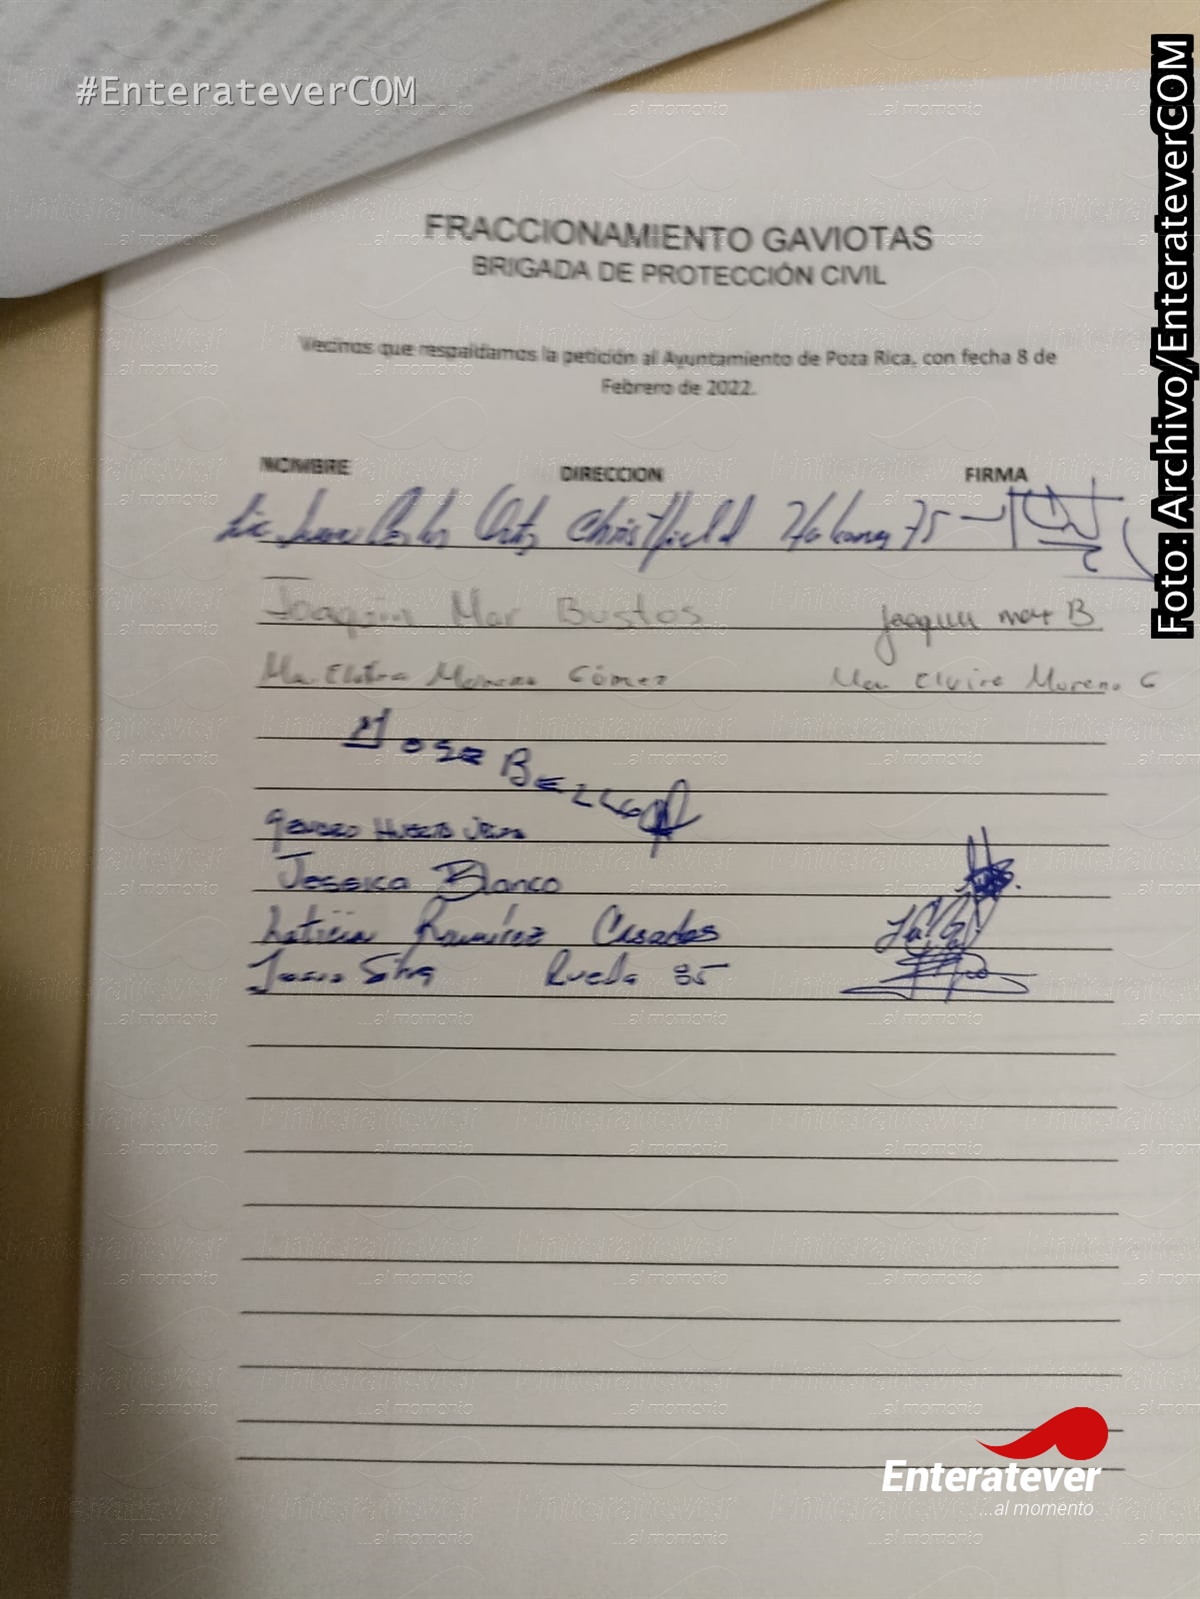 #EnterateverCOM
Foto: Archivo/EnterateverCOM
FRACCIONAMIENTO GAVIOTAS
BRIGADA DE PROTECCIÓN CIVIL
Vecinos que respaldamos la petición al Ayuntamiento de Poza Rica, con fecha 8 de
Febrero de 2022.
NOMBRE DIRECCION FIRMA
Lic Juan Carlos Ortiz Christfield 75
Joaquin Mar Bustos Joaquin mar B
Ma. Elvira Moreno Gómez Ma Elvira Moreno G
Jessica Blanco
Leticia Ramírez Casados
Silva Rueda 85
Enteratever
...al momento